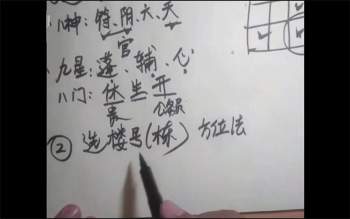 八神：符、阴、六、天
官
九星：蓬、辅、心
八门：休 生 开
② 选楼号（栋）方位法